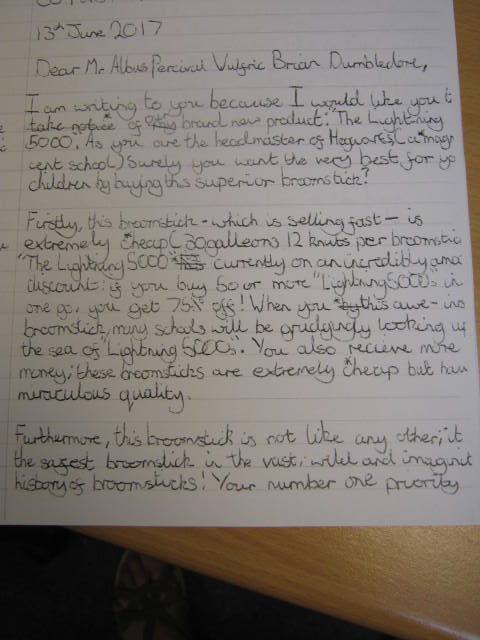 13th June 2017
Dear Mr Albus Percival Vulfric Brian Dumbledore,
I am writing to you because I would like you t
take notice of our brand new product: The Lightning
5000. As you are the headmaster of Hogwarts (a *magnif
cent school) surely you want the very best for yo
children by buying this superior broomstick?
Firstly, this broomstick - which is selling fast - is
extremely *cheap (30 galleons 12 knuts per broomstic
"The Lightning 5000" currently on an incredibly ama
discount: if you buy 50 or more "Lightning 5000s" in
one go, you get 75% off! When you *buy this awe-ins
broomstick, many schools will be grudgingly looking up
the sea of "Lightning 5000s". You also recieve more
money; these broomsticks are extremely *cheap but hav
muraculous quality.
Furthermore, this broomstick is not like any other; it
the safest broomstick in the vast, wild and imaginit
history of broomsticks! Your number one priority